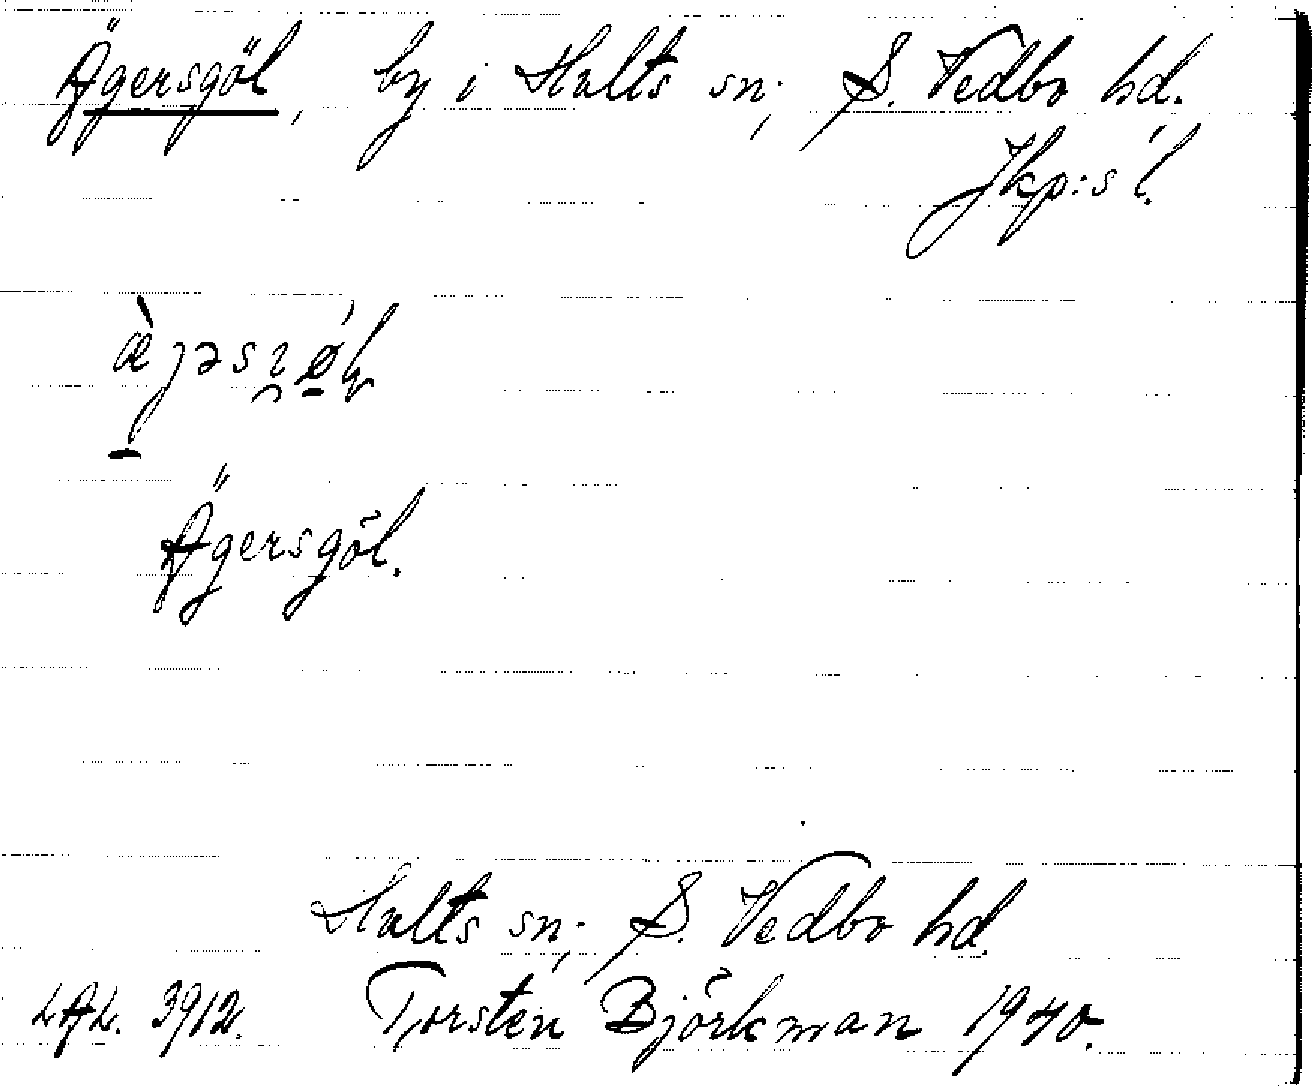 Ägersgöl, by i Hults sn; S. Vedbo hd.
Jkp:s l.
Ägersgöl.
Hults sn; S. Vedbo hd.
LAL. 3912. Torsten Björkman 1940.